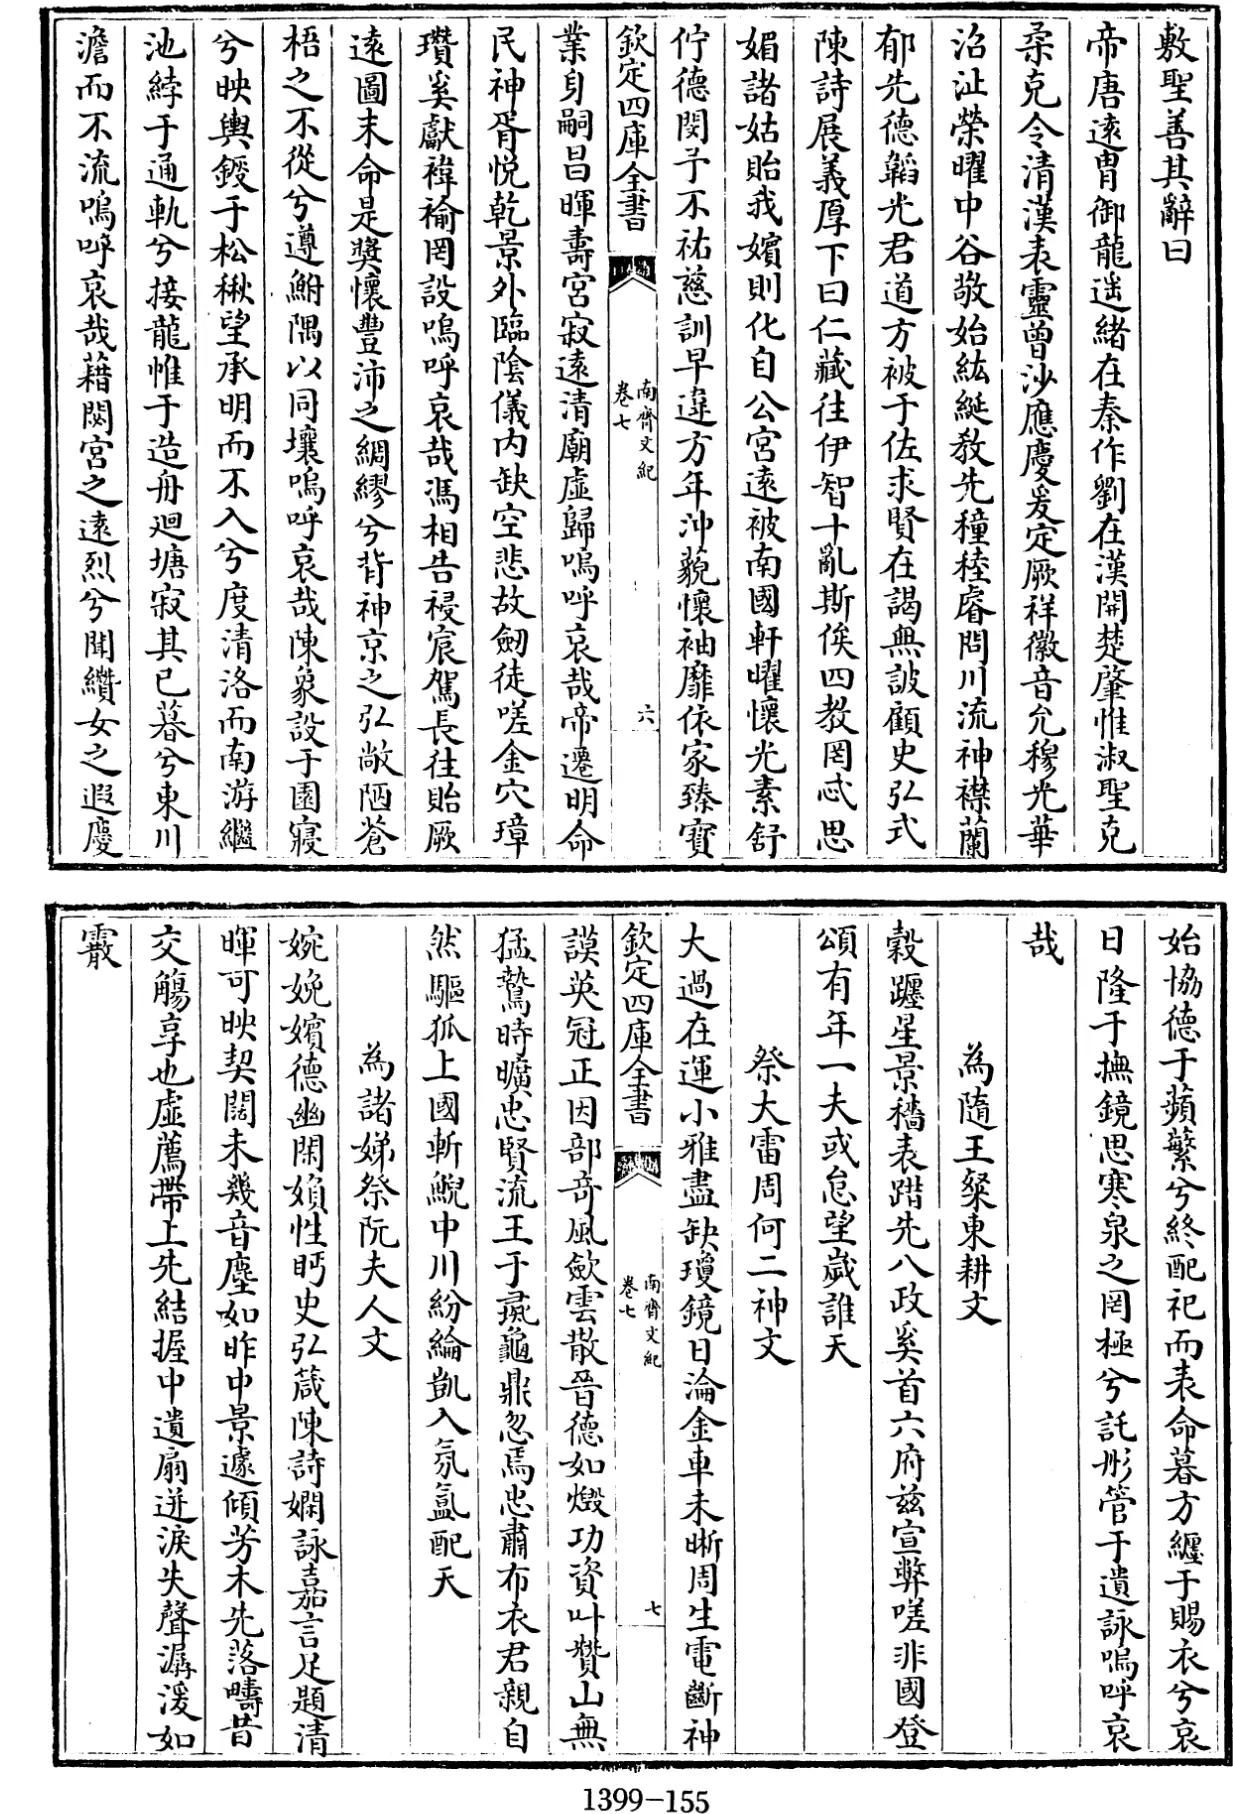 敷聖善其辭曰
帝唐遠胄御龍遥緒在秦作劉在漢開楚肇惟淑聖克
柔克令清漢表靈曾沙應慶爰定厥祥徽音允穆光華
沼沚榮曜中谷敬始紘綖教先穜稑睿問川流神襟蘭
郁先德韜光君道方被于佐求賢在謁無詖顧史弘式
陳詩展義厚下曰仁藏往伊智十亂斯俟四教罔忒思
媚諸姑貽我嬪則化自公宫遠被南國軒曜懷光素舒
佇德閔予不祐慈訓早違方年沖藐懐袖靡依家臻寳
欽定四庫全書
南齊文紀
卷七
六
業身嗣昌暉壽宫寂遠清廟虚歸嗚呼哀哉帝遷明命
民神胥悦乾景外臨陰儀内缺空悲故劒徒嗟金穴璋
瓚奚獻褘褕罔設嗚呼哀哉馮相告祲宸駕長往貽厥
逺圖末命是奬懷豐沛之綢繆兮背神京之弘敞陋蒼
梧之不從兮遵鮒隅以同壤嗚呼哀哉陳象設于園寢
兮映輿鍐于松楸望承明而不入兮度清洛而南游繼
池綍于通軌兮接龍帷于造舟廻塘寂其已暮兮東川
澹而不流嗚呼哀哉藉閟宫之遠烈兮聞纘女之遐慶
始協德于蘋蘩兮終配祀而表命暮方纏于賜衣兮哀
日隆于撫鏡思寒泉之罔極兮託彤管于遺詠嗚呼哀
哉
為隨王粲東耕文
穀躔星景穡表踖先八政奚首六府兹宣弊嗟非國登
頌有年一夫或怠望嵗誰天
祭大雷周何二神文
大過在運小雅盡缺瓊鏡日淪金車未晰周生電斷神
欽定四庫全書
南齊文紀
卷七
七
謨英冠正因部竒風歛雲散晉德如燬功資叶贊山無
猛鷙時曠忠賢流王于彘龜鼎忽焉忠肅布衣君親自
然驅狐上國斬鯢中川紛綸凱入氛氲配天
為諸娣祭阮夫人文
婉娩嬪德幽閑嬪性眄史弘葴陳詩嫻詠嘉言足題清
暉可映契闊未幾音塵如昨中景遽傾芳木先落疇昔
交觴享也虚薦帶上先結握中遺扇迸淚失聲潺湲如
霰
1399-155